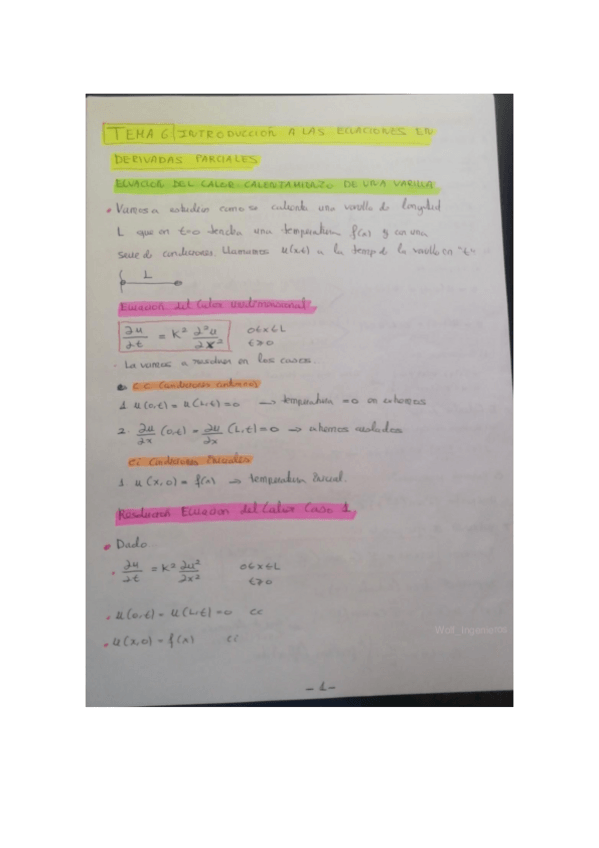 TEMA 6 INTRODUCCIÓN A LAS ECUACIONES EN
DERIVADAS PARCIALES
ECUACION DEL CALOR CALENTAMIENTO DE UNA VARILLA
• Vamos a estudiar como se calienta una varilla de longitud
L que en t=0 tendra una temperatura f(x) y con una
serie de condiciones. Llamamos u(x,t) a la temp de la varilla en "t"
L
Ecuacion del Calor Unidimensional
∂u/∂t = K² ∂²u/∂x² 0≤x≤L
t≥0
· La vamos a resolver en los casos.
C.C. Condiciones contornos
1. u(0,t) = u(L,t) = 0 → temperatura = 0 en extremos
2. ∂u/∂x (0,t) = ∂u/∂x (L,t) = 0 → extremos aislados
C.i Condiciones Iniciales
1. u(x,0) = f(x) → temperatura inicial.
Resolucion Ecuacion del Calor Caso 1
• Dado
· ∂u/∂t = K² ∂u²/∂x² 0≤x≤L
t≥0
· u(0,t) = u(L,t) = 0 CC
· u(x,0) = f(x)
Wolf_ingenieros
- 1 -